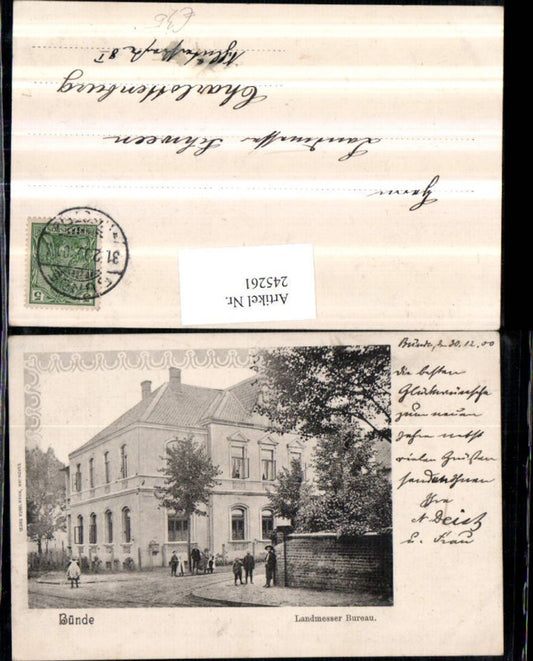 Herrn
Landmesser Schween
Charlottenburg
Artikel Nr.
245261
5
Bünde, d. 30.12.00
die besten
Glückwünsche
zum neuen
Jahre nebst
vielen Grüßen
sendet Ihnen
Ihr
A. Deist
u. Frau
Bünde
Landmesser Bureau.